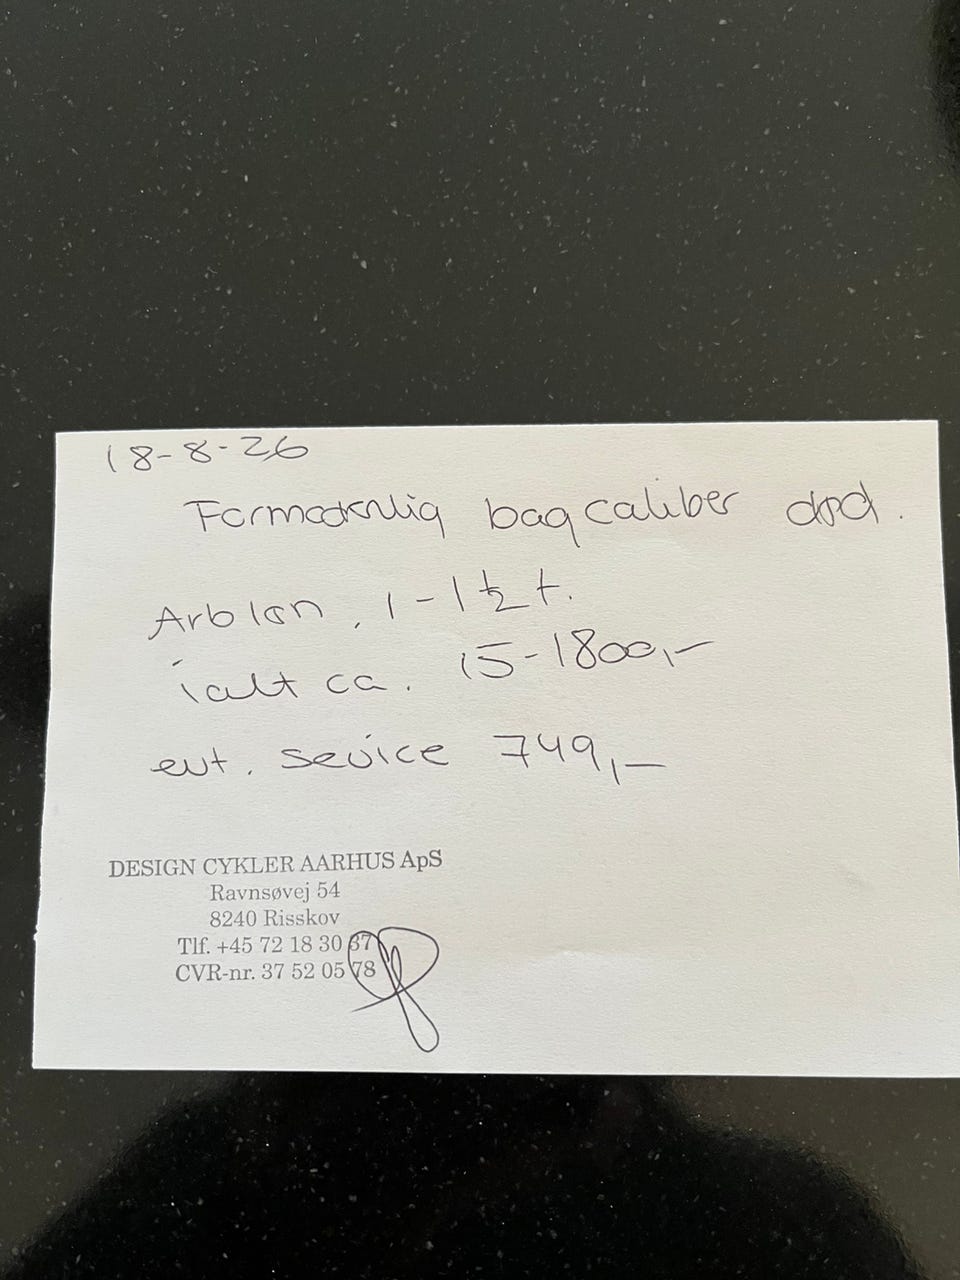 18-8-26
Formodentlig bagcaliber død.
Arbløn, 1-1½ t.
ialt ca. 15-1800,-
evt. sevice 749,-
DESIGN CYKLER AARHUS ApS
Ravnsøvej 54
8240 Risskov
Tlf. +45 72 18 30 37
CVR-nr. 37 52 05 78